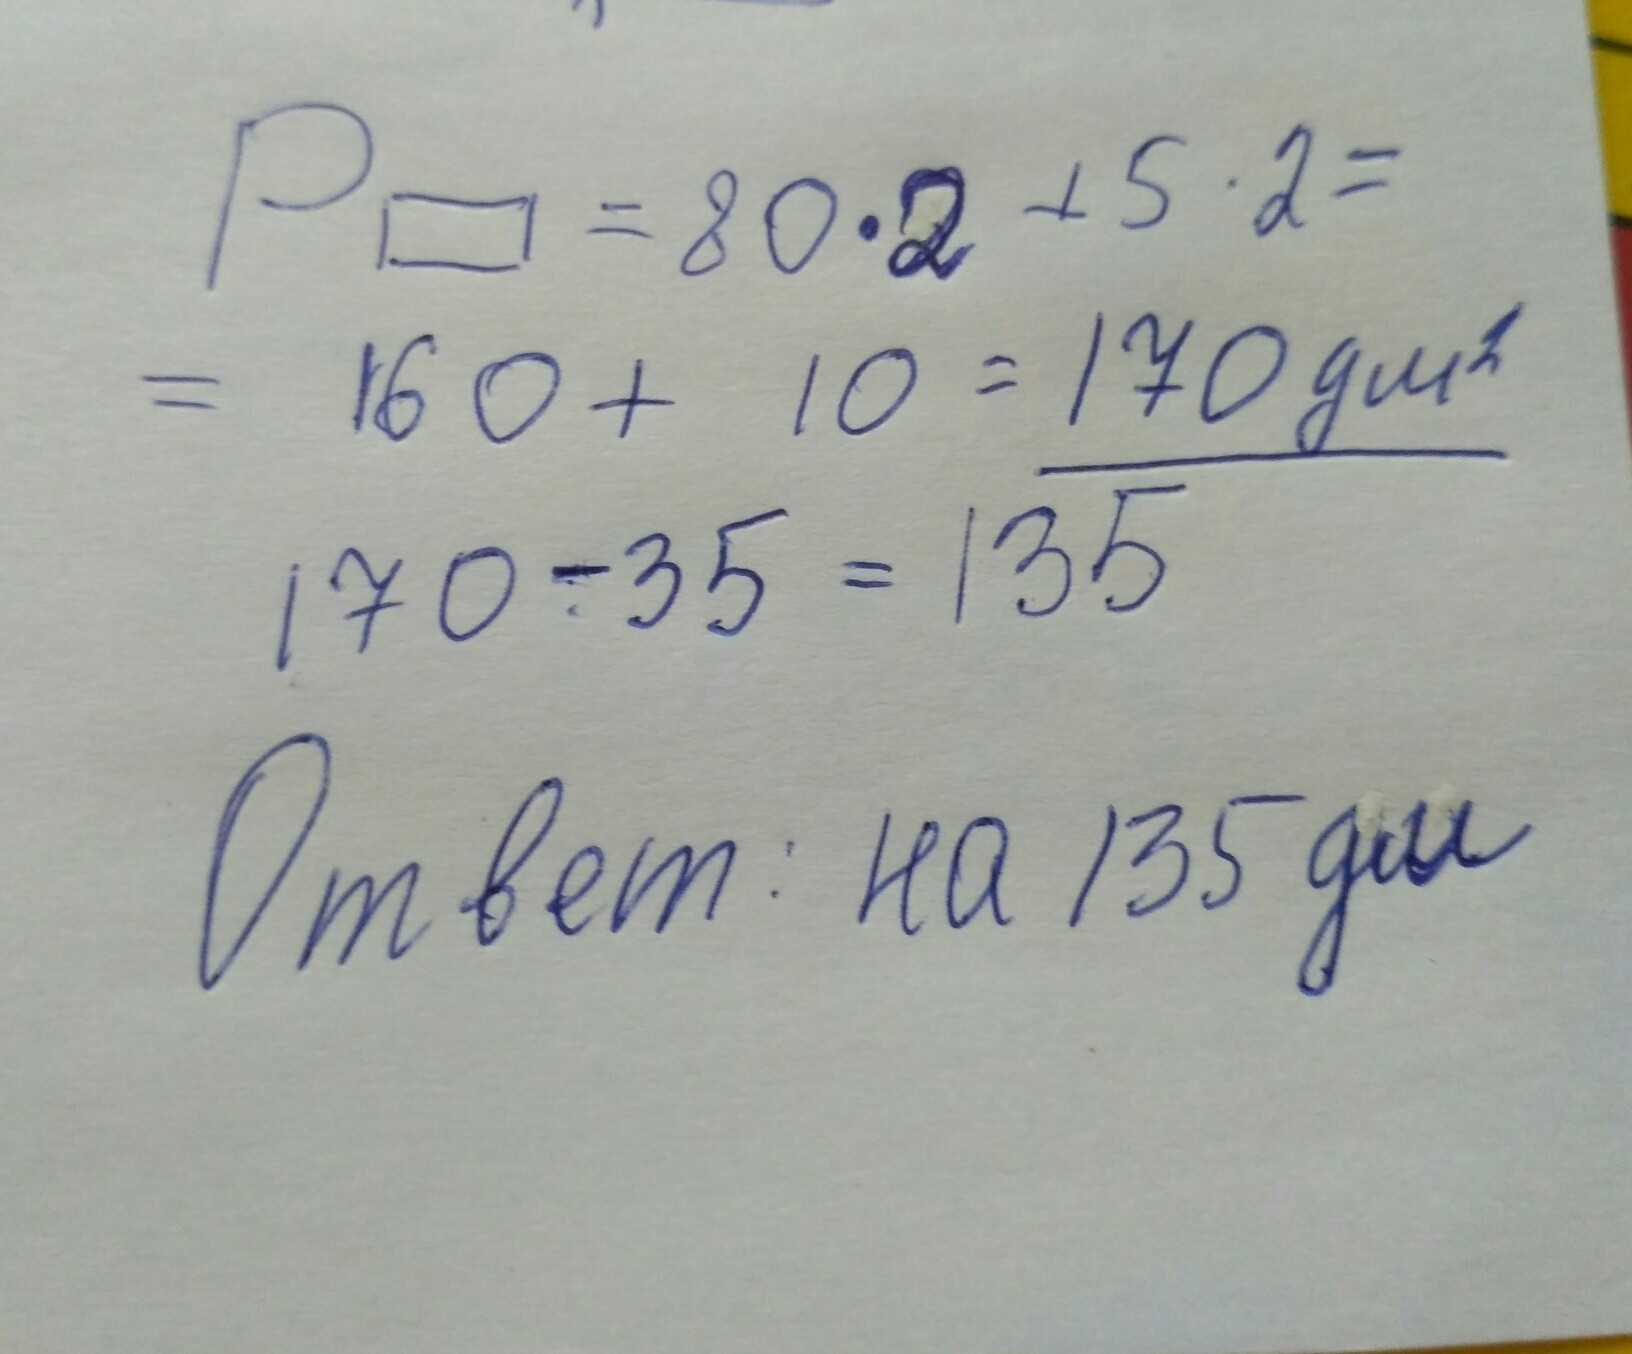 P▭ = 80·2 + 5·2=
= 160 + 10 = 170 дм²
170 - 35 = 135
Ответ: на 135 дм